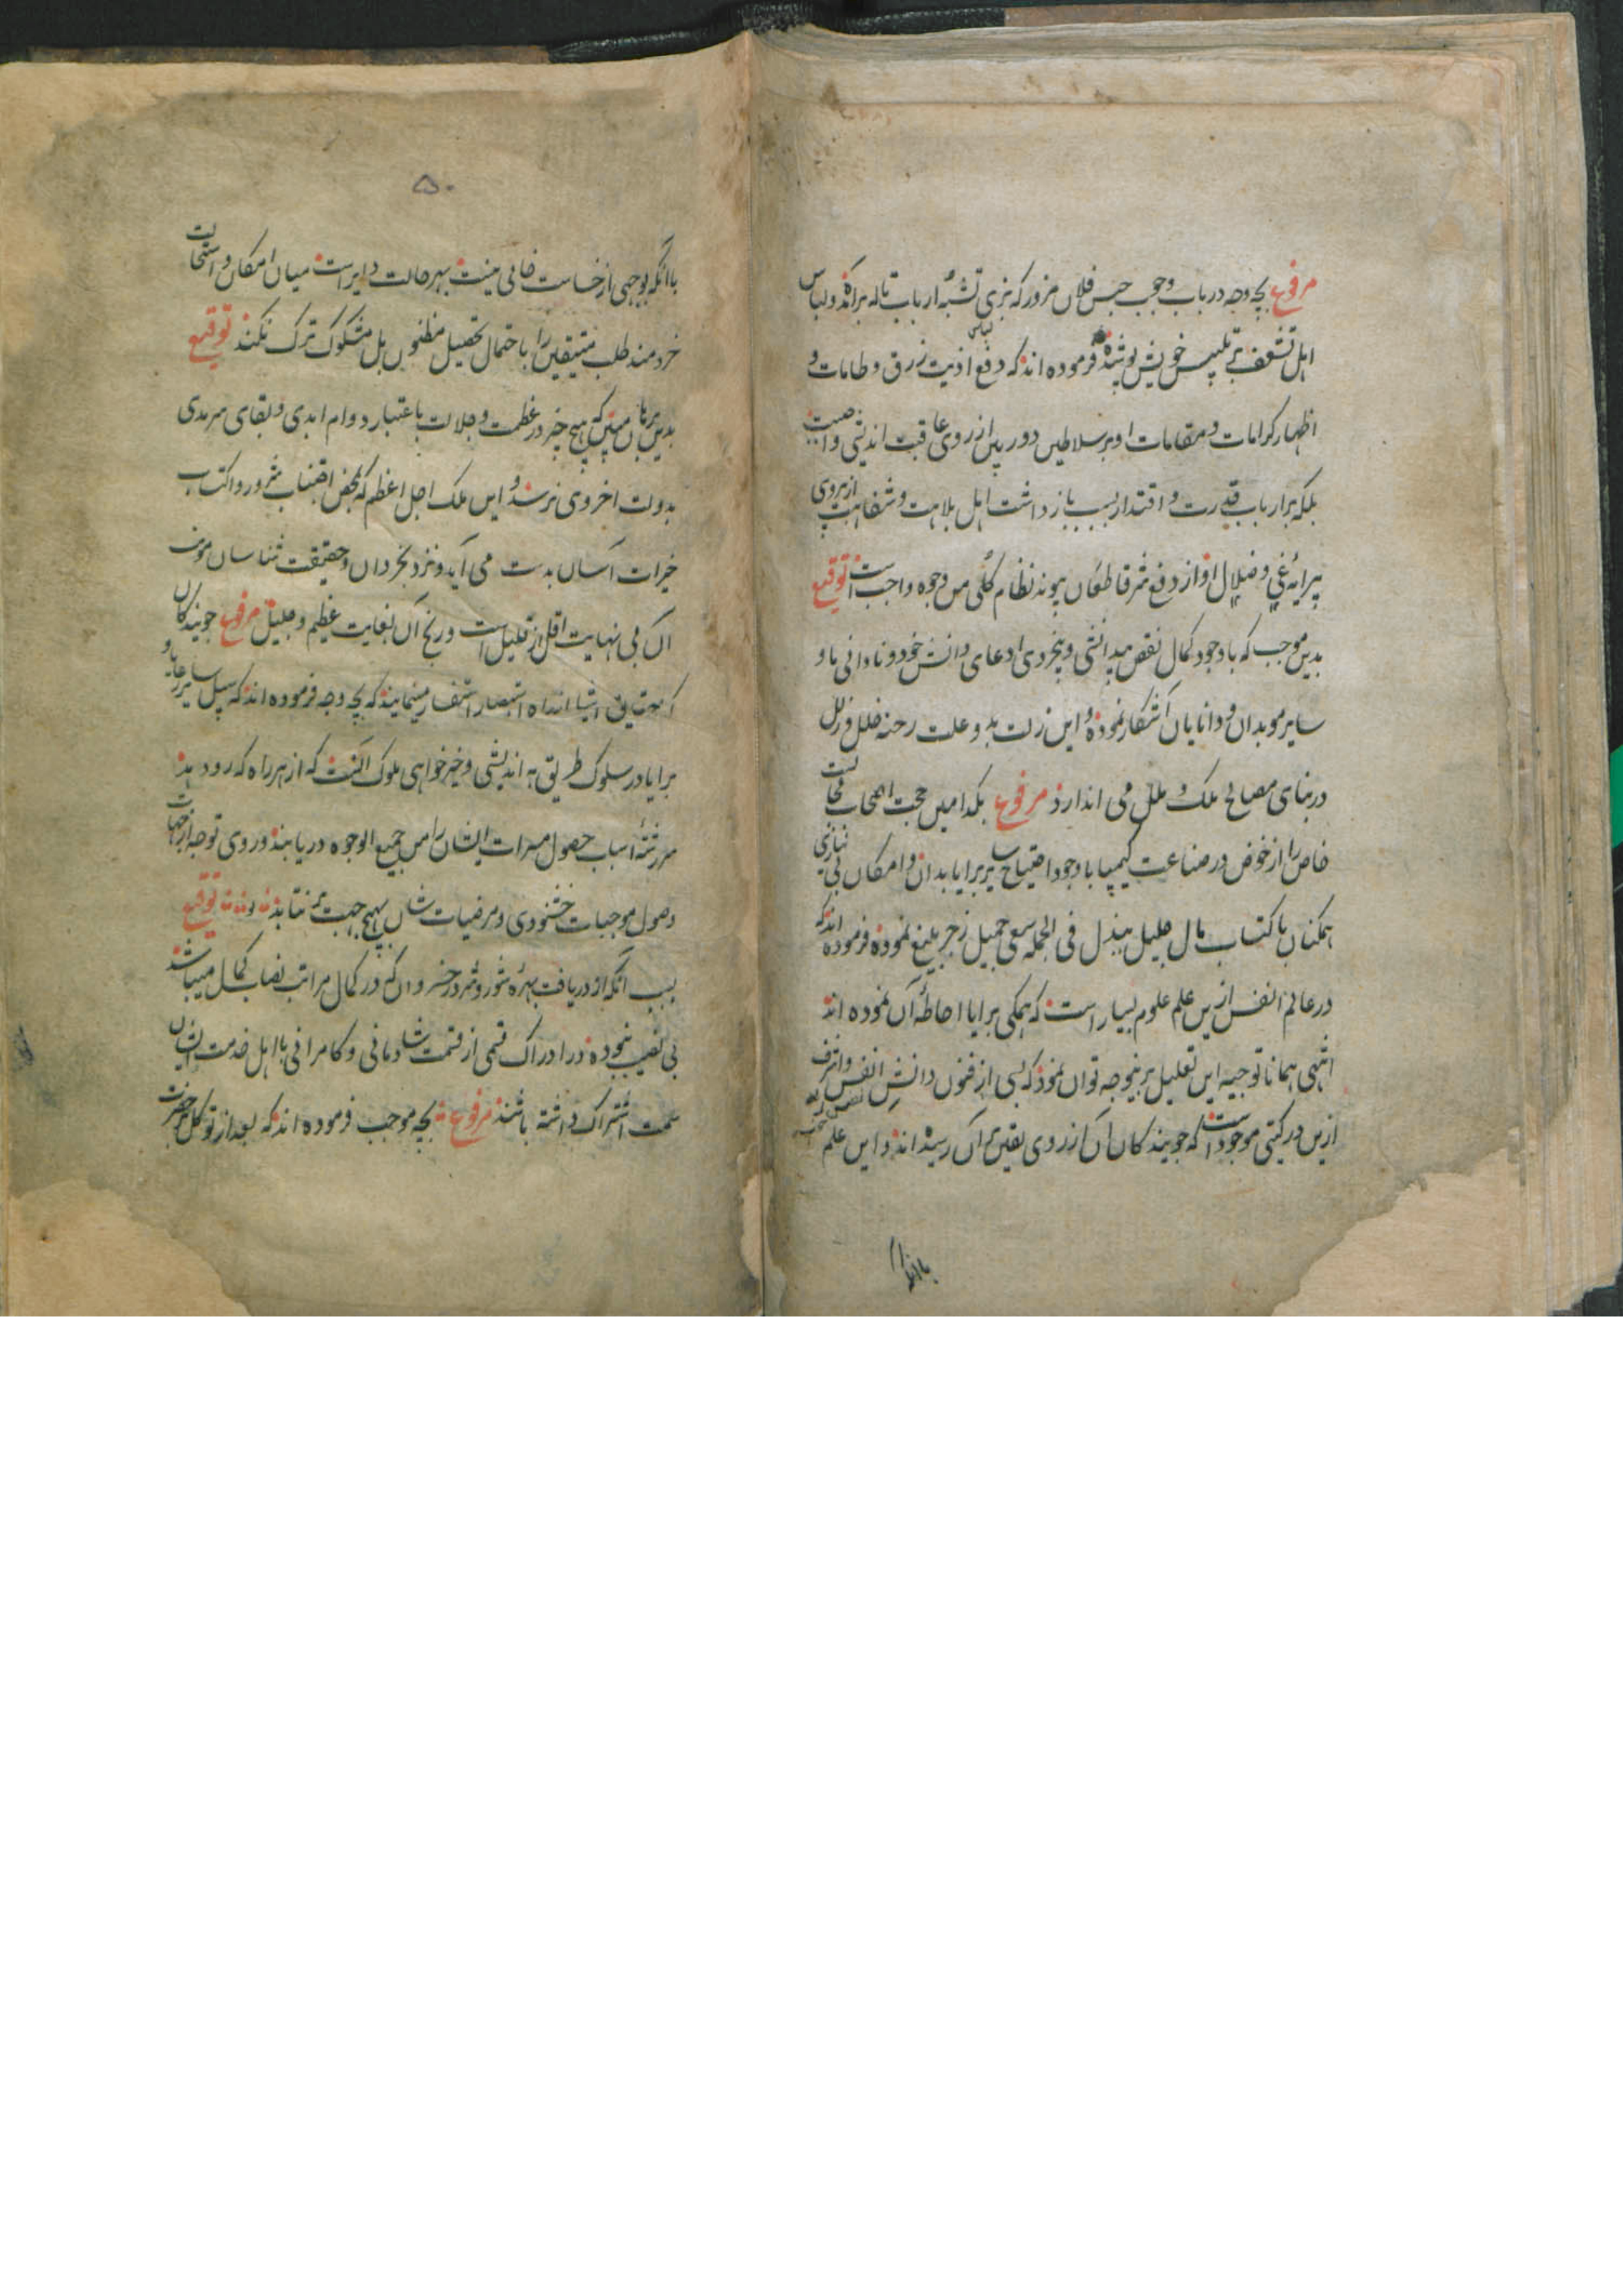 مرفوع بچه وجه در باب وجوب حبس فلان مزور که بزی تشبه ارباب تاله برآمده و لباس
اهل تقشف بر تلبیس خویش پوشیده فرموده اند که دفع اذیت زرق و طامات و
اظهار کرامات و مقامات او بر سلاطین دوربین از روی عاقبت اندیشی واجبست
بلکه بر ارباب قدرت و اقتدار بسبب بازداشت اهل بلاهت و سفاهت از پیروی
پیرایهٔ غی و ضلال او از دفع شر قاطعان پیوند نظام کلی من وجوه واجب است توقیع
بدین موجب که باوجود کمال نقص بیدانشی و بیخردی ادعای دانش خود و نادانی باو
سایر موبدان و دانایان آشکار نموده و این زلت بدو علت رخنه خلل و زلل
در بنای مصالح ملک و ملل می اندازد مرفوع بکدامین حجت اصحاب
خاص را از خوض در صناعت کیمیا باوجود احتیاج سایر برایا بدان و امکان بی نیازی
همکنان باکتساب مال جلیل ببذل فی الجمله سعی جمیل زجر بلیغ نموده فرموده اندکه
در عالم انفس ازین علم علوم بسیار است که همکی برایا احاطهٔ آن نموده اند
انتهی همانا توجیه این تعلیل برینوجه توان نمود که بسی از فنون دانش انفس و اشرف
ازین در کیتی موجود است که جویندکان آن از روی یقین بر آن رسیده اند و این علم
باانکه
۵۰
باانکه بوجهی از خساست خالی نیست بهر حالت دایر است میان امکان و استحالت
خردمند طلب متیقن را باحتمال تحصیل مظنون بل مشکوک ترک نکند توقیع
بدین برهان متین که هیچ چیز در عظمت و جلالت باعتبار دوام ابدی و بقای سرمدی
بدولت اخروی نرسد و این ملک اجل اعظم که بمحض اجتناب شرور و اکتساب
خیرات آسان بدست می آید و نزد بخردان و حقیقت شناسان مونت
آن بی نهایت اقل از قلیل است و ربح آن بغایت عظیم و جلیل مرفوع جویندکان
حقایق اشیا استبصار استفسار مینمایند که بچه وجه فرموده اند که سبیل سایر رعایا و
برایا در سلوک طریق به اندیشی و خیرخواهی ملوک آنست که از هر راه که رود بد
سررشتهٔ اسباب حصول مسرات ایشان را من جمیع الوجوه دریابند و روی توجه از جهات
وصول موجبات خشنودی و مرضیات شان بهیچ جهت برنتابند توقیع
بسبب آنکه از دریافت بهرهٔ شور و شر در خسروان که در کمال مراتب نصاب کمال میباشد
بی نصیب نبوده در ادراک قسمی از قسمت شادمانی و کامرانی باهل خدمت ایشان
سمت اشتراک داشته باشند مرفوع بچه موجب فرموده اند که بعد از توکل بر حضرت